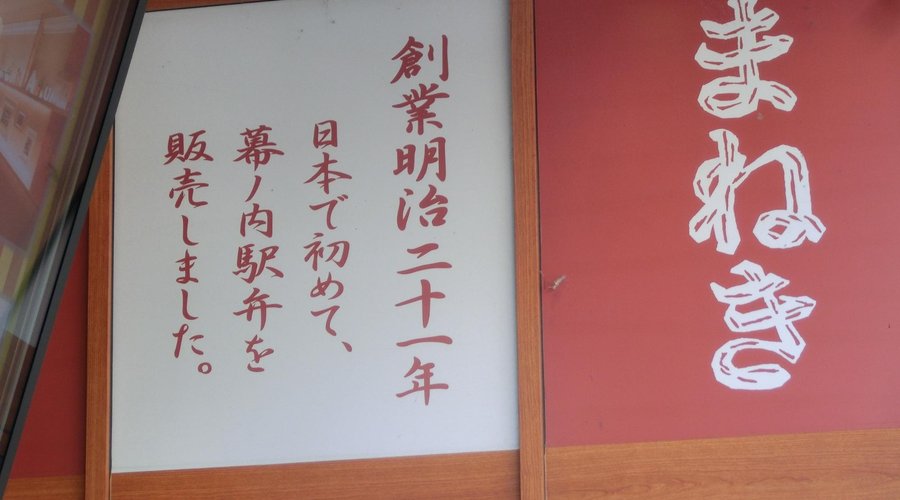 まねき
創業明治二十一年
日本で初めて、
幕ノ内駅弁を
販売しました。